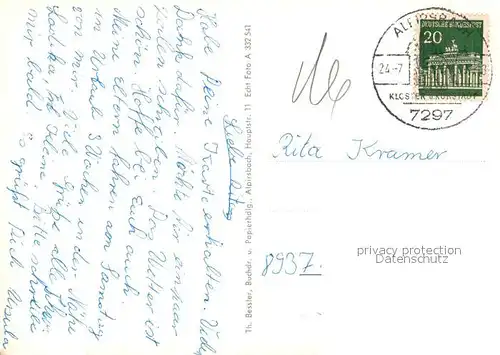 Liebe
Habe Deine Karte erhalten. Vielen
Dank dafür. Möchte Dir ein paar
Zeilen schreiben. Das Wetter ist
schön. Hoffe bei Euch auch.
Meine Eltern fahren am Samstag
in Urlaub 3 Wochen in der Nähe
von mir. Viele Grüße alle
Bitte schreibe
mir bald. Es grüßt Dich Ursula
Th. Bessler, Buchdr. u. Papierhdlg., Alpirsbach, Hauptstr. 11 Echt Foto A 332 541
DEUTSCHE BUNDESPOST
20
24.-7.
KLOSTER
7297
Rita Kramer
8937.
privacy protection
Datenschutz